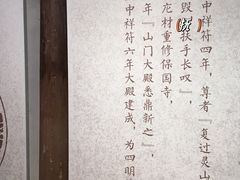 中祥符四年，尊者『复过灵山
毁 扶手长叹』，
庀材重修保国寺，
年『山门大殿悉鼎新之』，
中祥符六年大殿建成，为四明